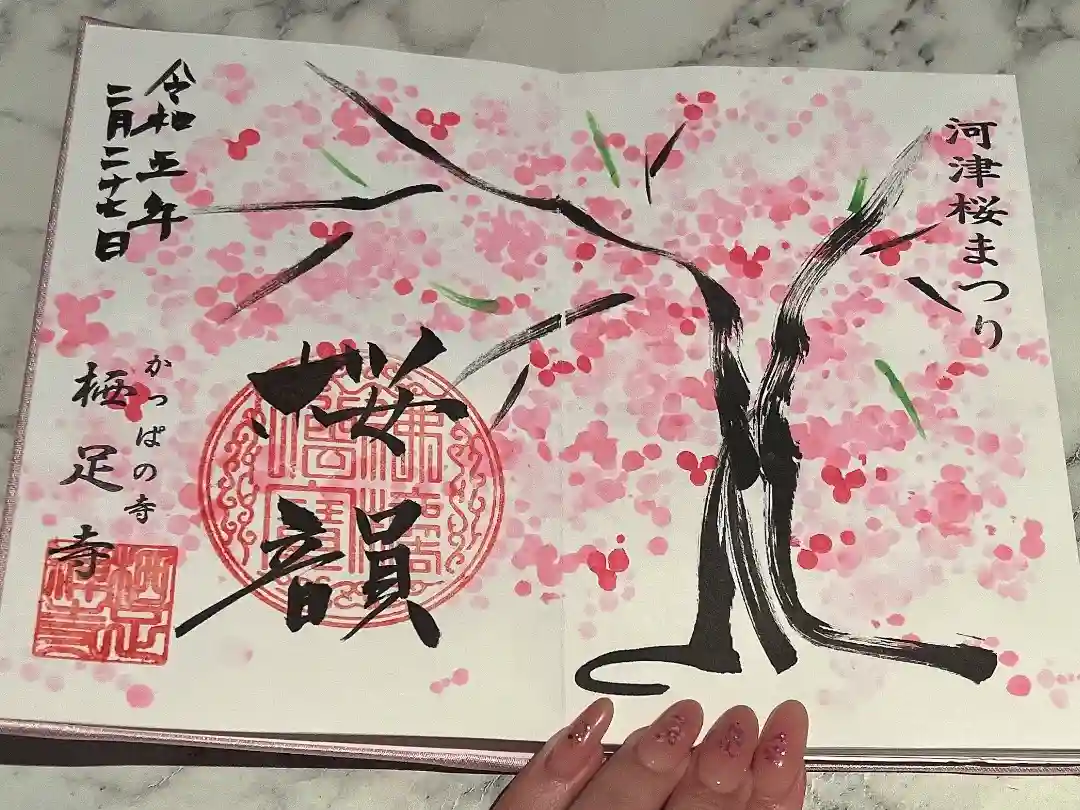 河津桜まつり
桜韻
令和五年
二月二十七日
かっぱの寺
栖足寺
栖足
禅寺